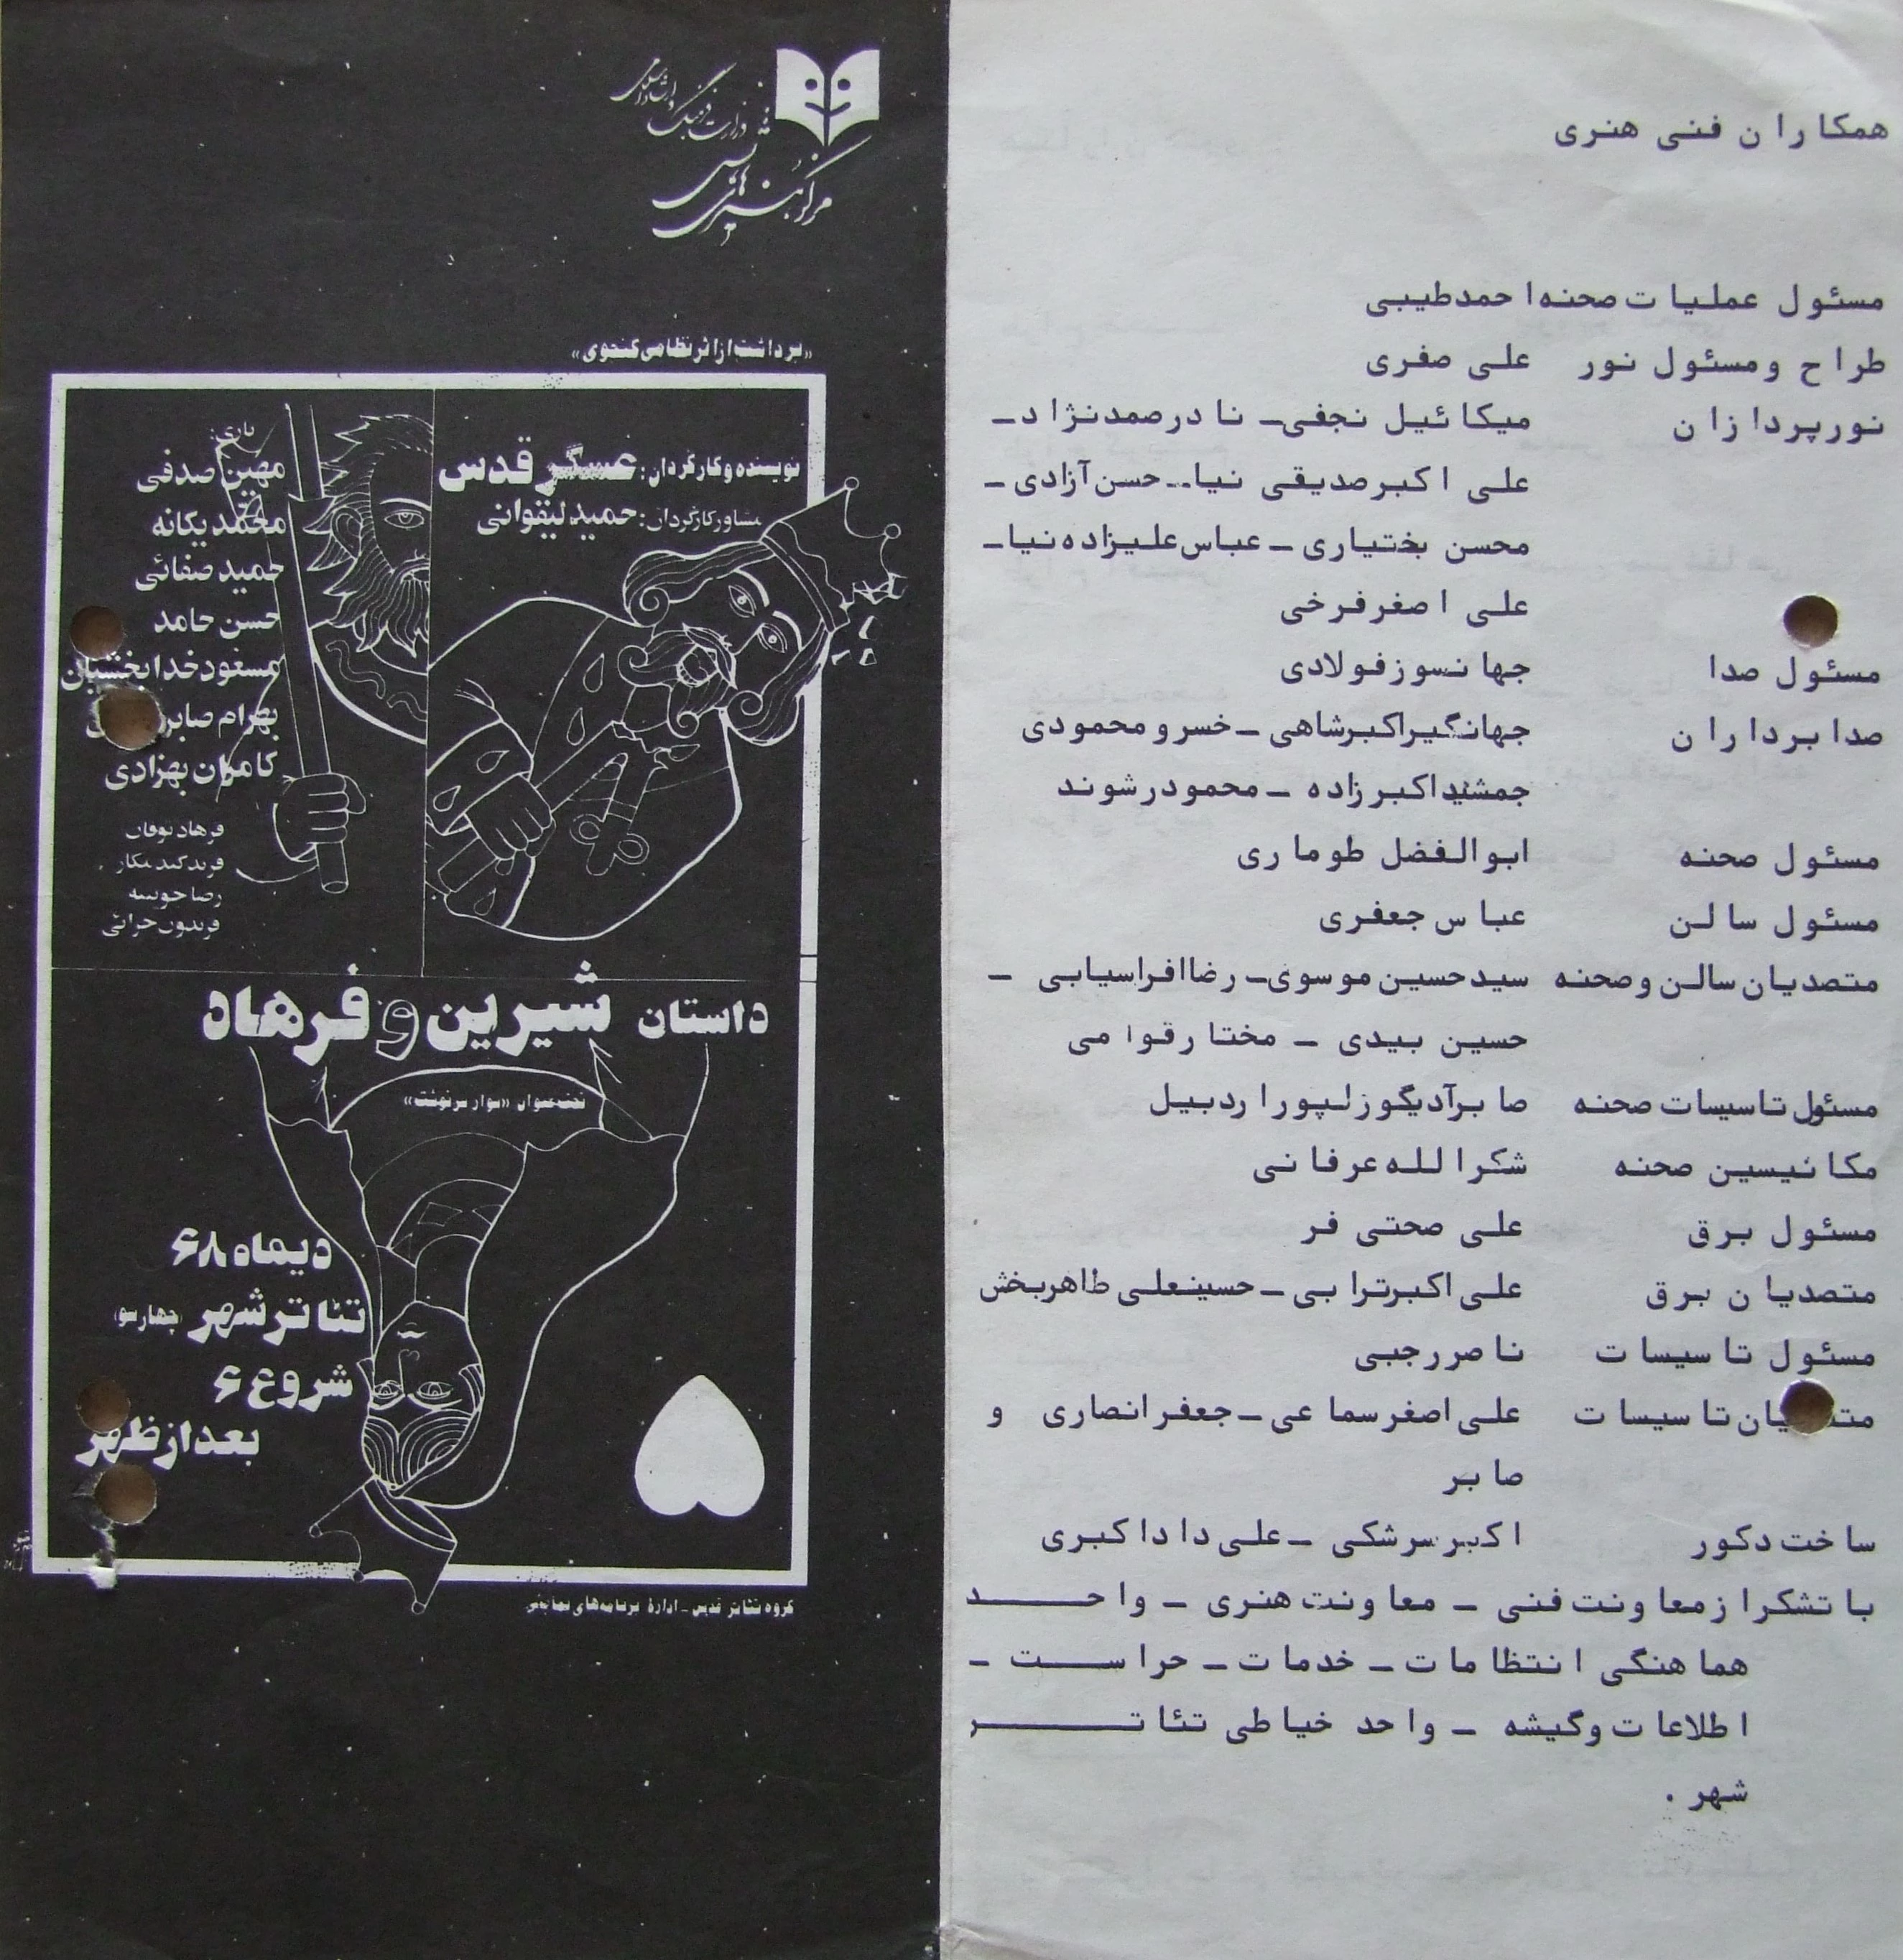 همکاران فنی هنری
مسئول عملیات صحنه احمد طیبی
طراح و مسئول نور علی صفری
نورپردازان میکائیل نجفی - نادر صمدنژاد -
علی اکبر صدیقی نیا - حسن آزادی -
محسن بختیاری - عباس علیزاده نیا -
علی اصغر فرخی
مسئول صدا جهانسوز فولادی
صدابرداران جهانگیر اکبرشاهی - خسرو محمودی
جمشید اکبرزاده - محمود رشوند
مسئول صحنه ابوالفضل طوماری
مسئول سالن عباس جعفری
متصدیان سالن و صحنه سید حسین موسوی - رضا افراسیابی -
حسین بیدی - مختار قوامی
مسئول تاسیسات صحنه صابر آدیگوزلپور اردبیل
مکانیسین صحنه شکرالله عرفانی
مسئول برق علی صحتی فر
متصدیان برق علی اکبر ترابی - حسینعلی طاهربخش
مسئول تاسیسات ناصر رجبی
تاسیسات علی اصغر سماعی - جعفر انصاری و
صابر
ساخت دکور اکبر سرشکی - علی داداکبری
با تشکر از معاونت فنی - معاونت هنری - واحد
هماهنگی انتظامات - خدمات - حراست -
اطلاعات و گیشه - واحد خیاطی تئاتر
شهر .
وزارت فرهنگ و ارشاد اسلامی
مرکز هنرهای نمایشی
«برداشت از اثر نظامی گنجوی»
نویسنده و کارگردان: عسگر قدس
مشاور کارگردان: حمید لیقوانی
بازی:
مهین صدفی
محمد یگانه
حمید صفائی
حسن حامد
مسعود خدابخشیان
بهرام
کامران بهزادی
فرهاد
فرید
رضا
فریدون
داستان شیرین و فرهاد
تحت عنوان «سوار سرنوشت»
دیماه ۶۸
تئاتر شهر (چهارسو)
شروع ۶
بعد از ظهر
گروه تئاتر قدس - ادارهٔ برنامه‌های نمایشی